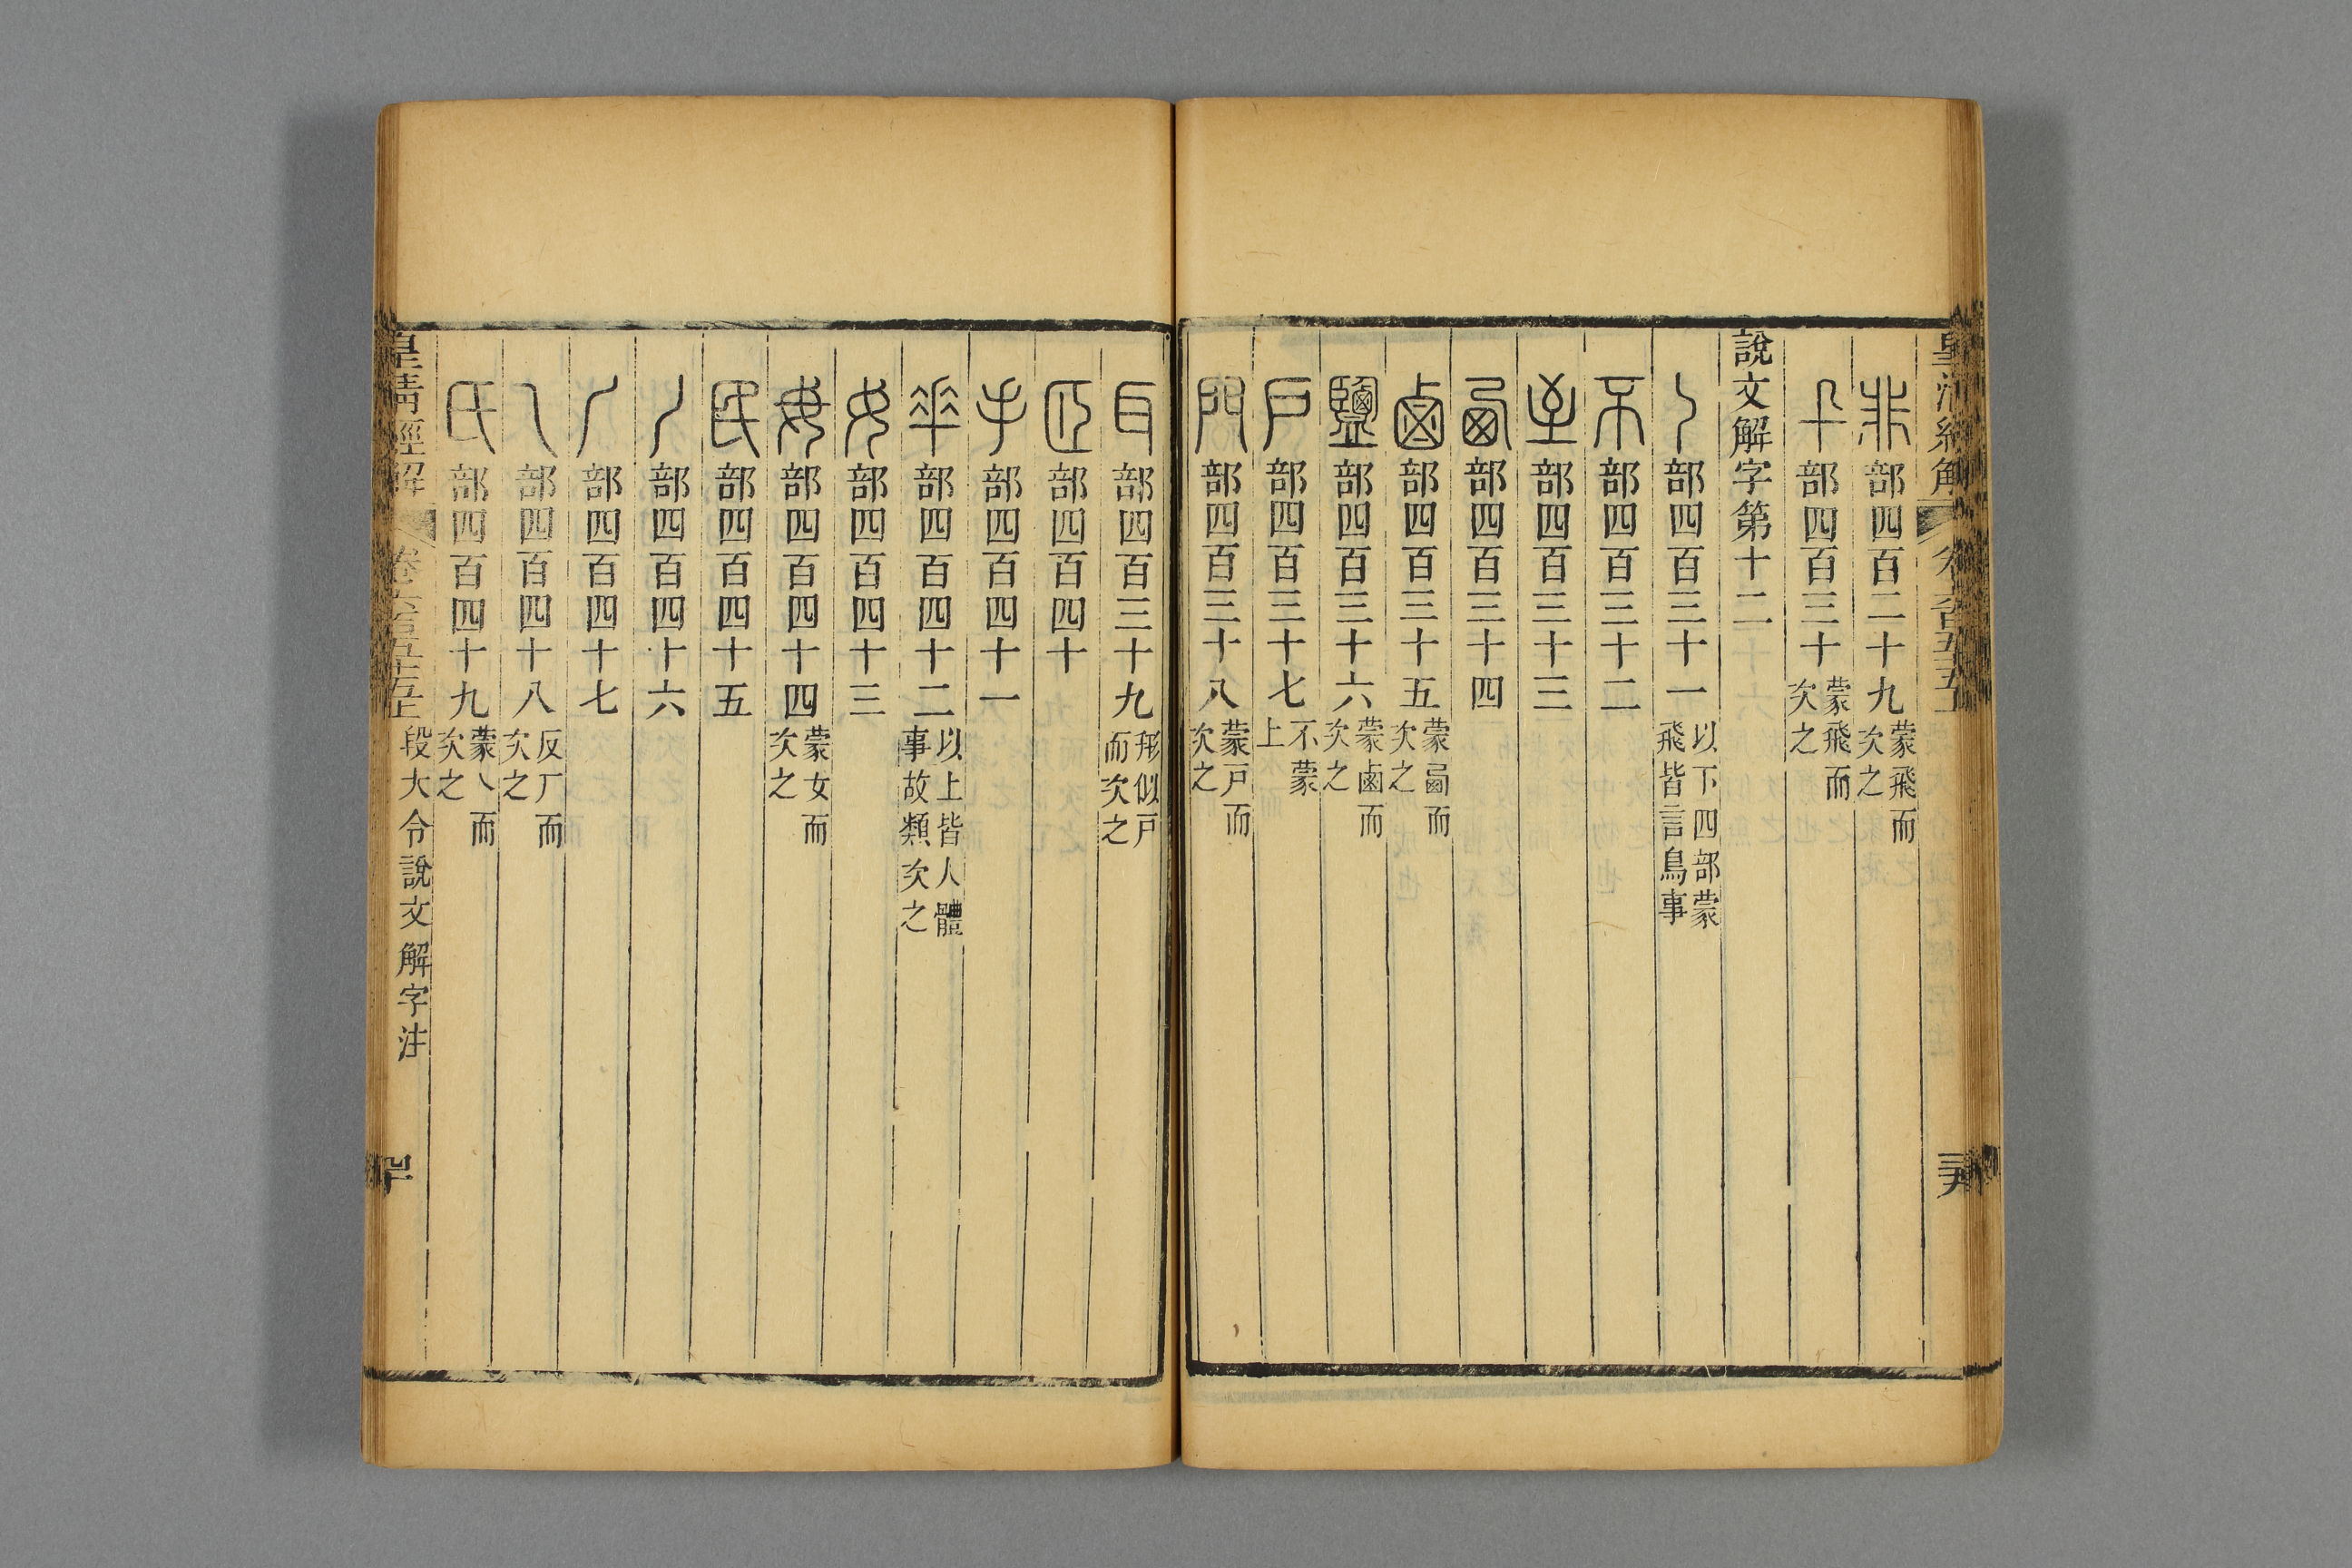 皇清經解
非部四百二十九蒙飛而次之
卂部四百三十蒙飛而次之
說文解字第十二
乁部四百三十一以下四部蒙飛皆言鳥事
不部四百三十二
至部四百三十三
㢴部四百三十四
鹵部四百三十五蒙㢴而次之
鹽部四百三十六蒙鹵而次之
戶部四百三十七不蒙上
門部四百三十八蒙戶而次之
耳部四百三十九形似戶而次之
𦣝部四百四十
手部四百四十一
𠦬部四百四十二以上皆人體事故類次之
女部四百四十三
毋部四百四十四蒙女而次之
民部四百四十五
丿部四百四十六
𠂆部四百四十七
乁部四百四十八反𠂆而次之
氏部四百四十九蒙乁而次之
皇清經解 段大令說文解字注